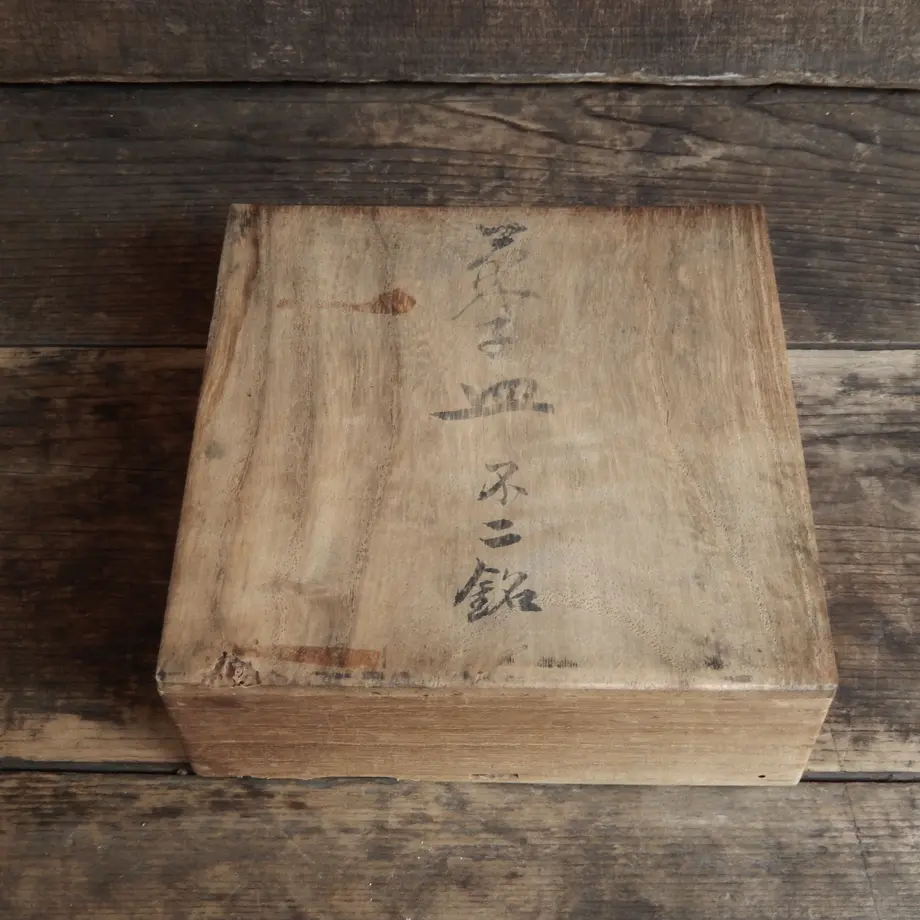 菓子皿 不二銘